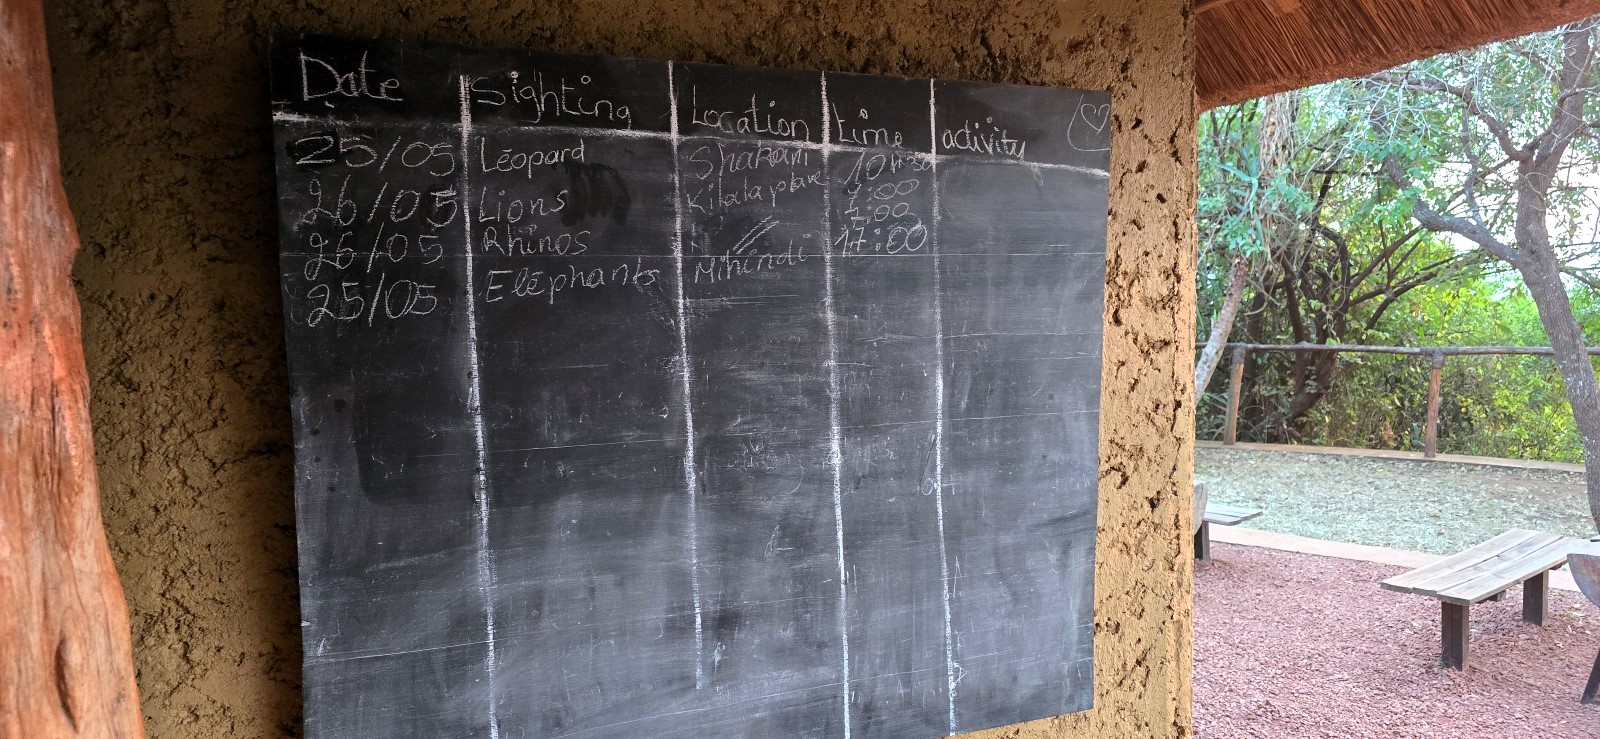 Date Sighting Location time activity
25/05 Léopard Shakani 10H30
26/05 Lions Kilala plane 7:00
26/05 Rhinos // 7:00
25/05 Eléphants Mihindi 17:00